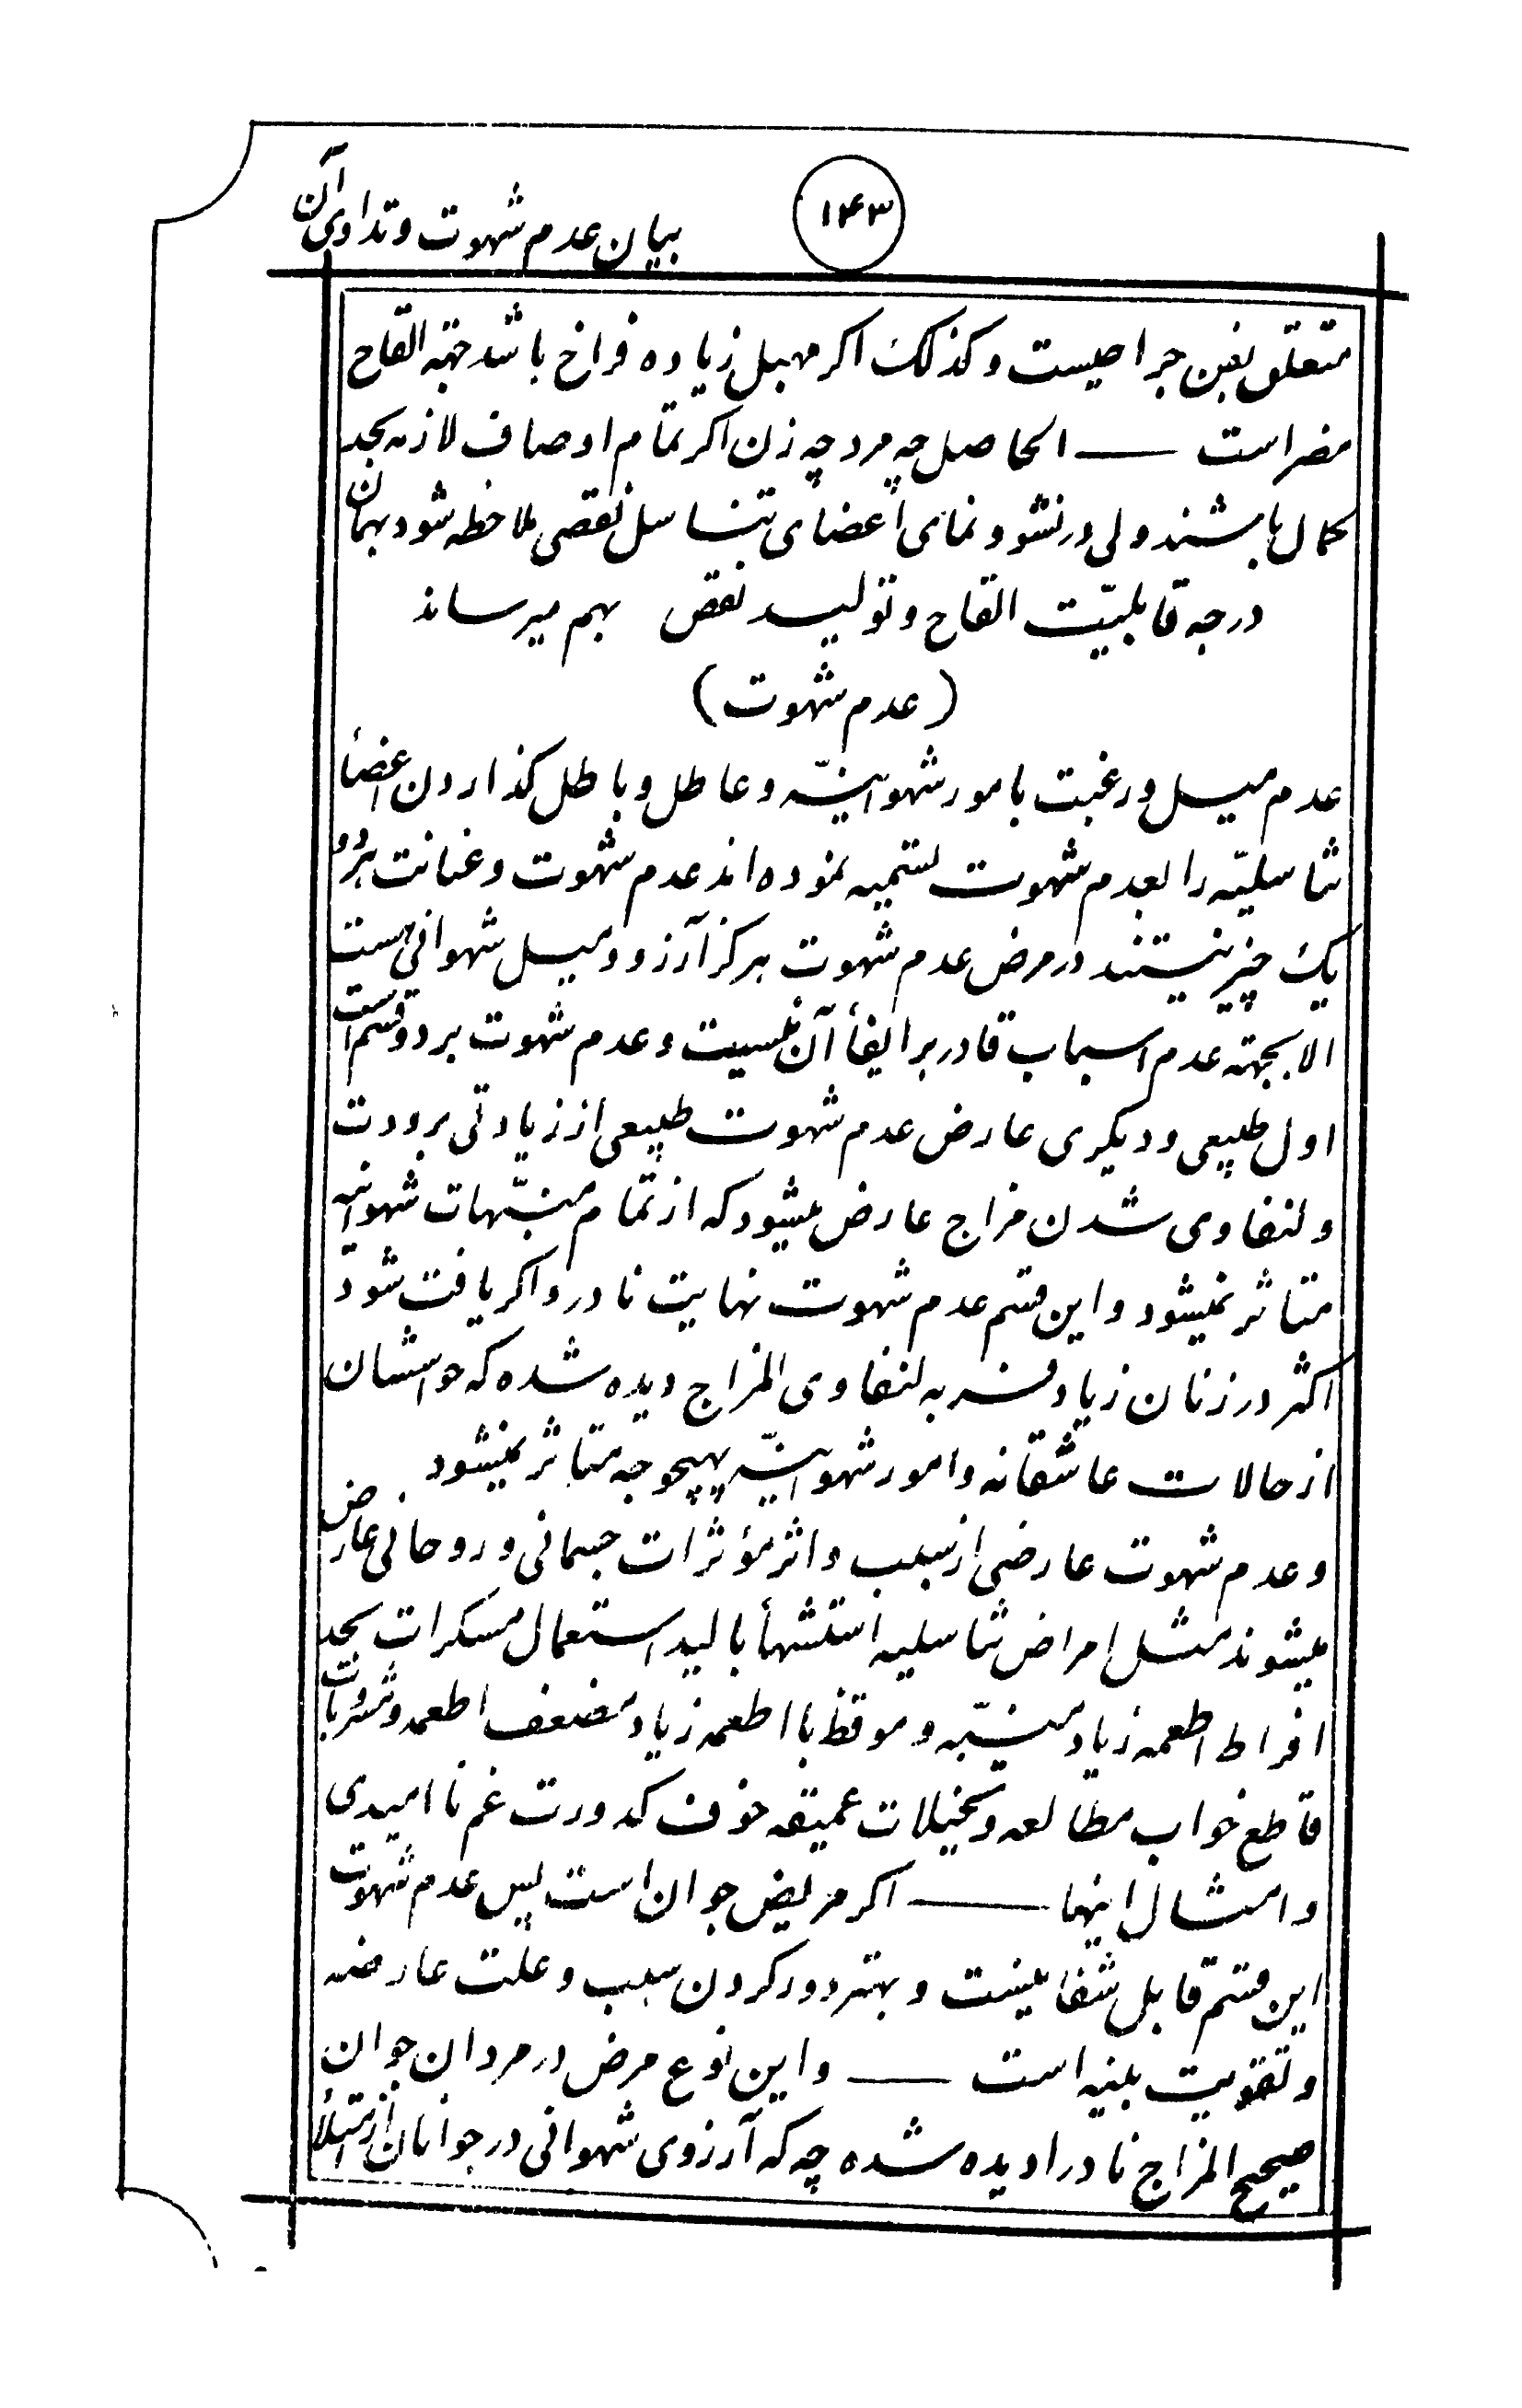 ۱۴۳
بیان عدم شهوت و تداوی آن
متعلق بفن جراحیست و کذلک اکر مهبل زیاده فراخ باشد جهته القاح
مضر است — الحاصل چه مرد چه زن اکر تمام اوصاف لازمه بحد
کمال باشند ولی در نشو و نمای اعضای تناسل نقصی ملاحظه شود بهمان
درجه قابلیّت القاح و تولید نقص بهم میرساند
(عدم شهوت)
عدم میل و رغبت بامور شهوانیّه و عاطل و باطل کذاردن اعضأ
تناسلیّه را بعدم شهوت تسمیه نموده اند عدم شهوت و عنانت هر دو
یک چیز نیستند در مرض عدم شهوت هرکز آرزو و میل شهوانی نیست
الا بجهته عدم اسباب قادر بر ایفأ آن نیست و عدم شهوت بر دو قسم است
اول طبیعی و دیکری عارض عدم شهوت طبیعی از زیادتی برودت
و لنفاوی شدن مزاج عارض میشود که از تمام منبّهات شهوانیه
متاثر نمیشود و این قسم عدم شهوت نهایت نادر و اکر یافت شود
اکثر در زنان زیاد فربه لنفاوی المزاج دیده شده که حواسشان
از حالات عاشقانه و امور شهوانیّه بهیچوجه متاثر نمیشود
و عدم شهوت عارضی از سبب و اثر مؤثرات جسمانی و روحانی عارض
میشوند مثل امراض تناسلیه استشهأ بالید استعمال مسکرات بحد
افراط اطعمه زیاد منبّه و موقظ با اطعمه زیاد مضعف اطعمه و مشروبات
قاطع خواب مطالعه و تخیلات عمیقه خوف کدورت غم ناامیدی
و امثال اینها — اکر مریض جوان است پس عدم شهوت
این قسم قابل شفا نیست و بهتر دور کردن سبب و علت عارضه
و تقویت بنیه است — و این نوع مرض در مردان جوان
صحیح المزاج نادرا دیده شده چه که آرزوی شهوانی در جوانان از